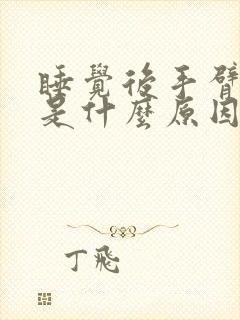 睡覺後手臂
是什麼原因
丁飛